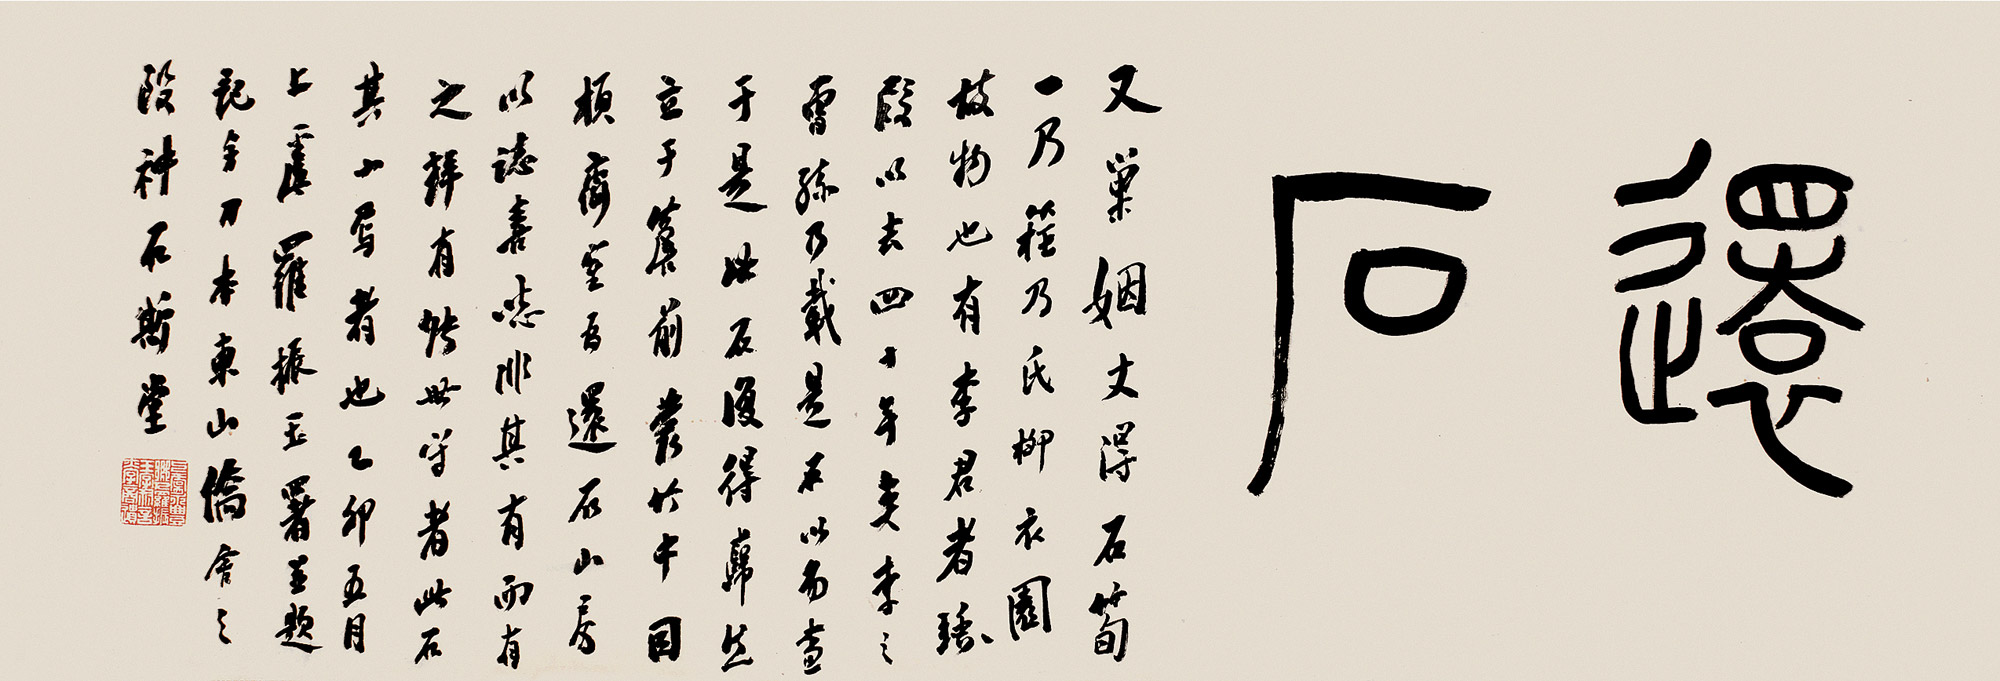 還石
又巢姻丈得石筍
一乃蘀乃氏柳衣園
故物也有李君者
段以去四十年矣李之
曾孫乃載是石以易壺
于是此石復得歸然
立于舊前叢竹中因
榜齋室曰還石山房
以誌喜志非其有而有
之拜有帖世守者此石
其小焉者也乙卯五月
上虞羅振玉署並題
記年刀本東山僑舍之
殷禮在斯堂